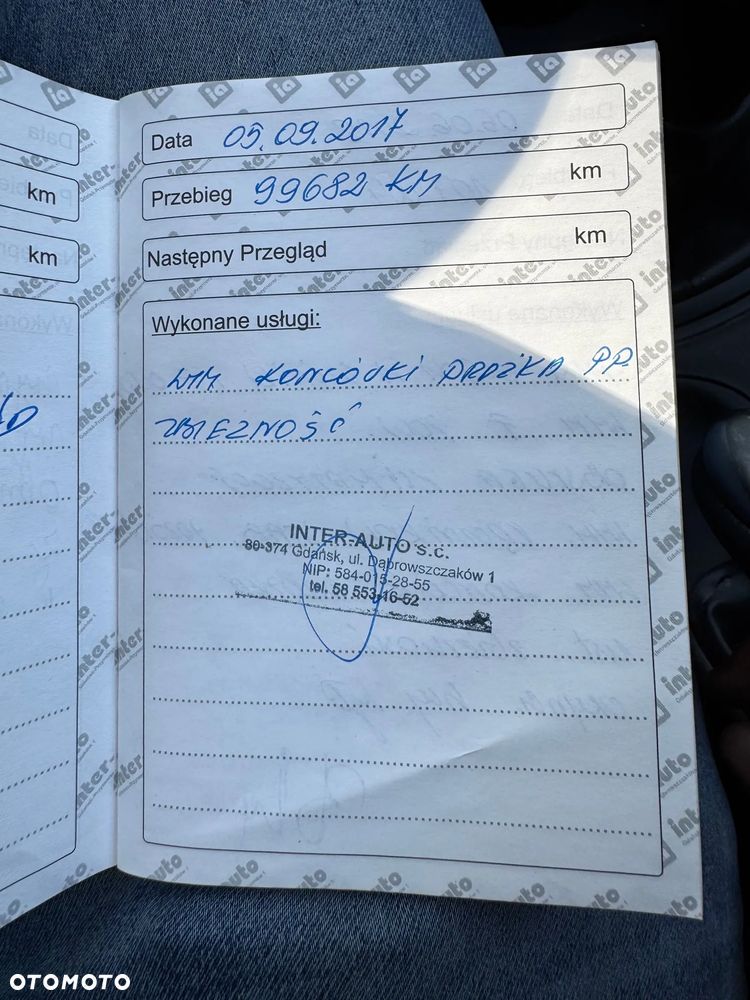 Data 05.09.2017
Przebieg 99682 KM km
Następny Przegląd km
Wykonane usługi:
WM KOŃCÓWKI DRĄŻKA PP.
ZBIEŻNOŚĆ
INTER-AUTO s.c.
80-374 Gdańsk, ul. Dąbrowszczaków 1
NIP: 584-015-28-55
tel. 58 553-16-52
km
km
OTOMOTO